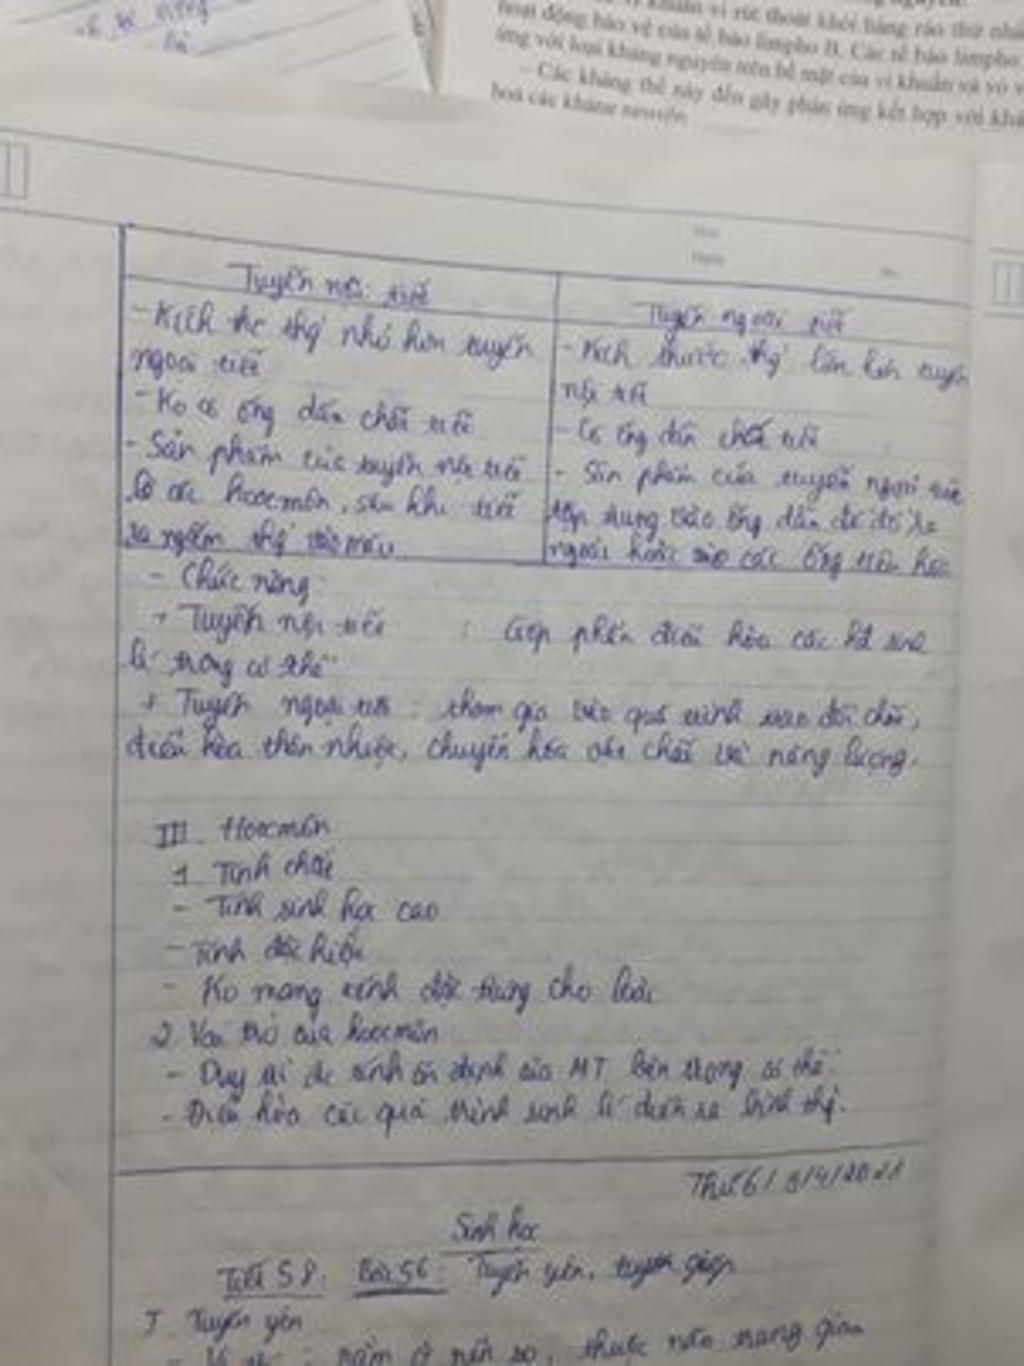 hoạt động bảo vệ của tế bào limpho B. Các tế bào limpho
ứng với loại kháng nguyên trên bề mặt của vi khuẩn và vỏ v
- Các kháng thể này đến gây phản ứng kết hợp với khá
hoá các kháng nguyên
Tuyến nội tiết
- Kích thc thg nhỏ hơn tuyến
ngoại tiết
- Ko có ống dẫn chất tiết
- Sản phẩm của tuyến nội tiết
là các hoocmôn, sau khi tiết
ra ngấm thg vào máu
Tuyến ngoại tiết
- Kích thước thg lớn hơn tuyến
nội tiết
- Có ống dẫn chất tiết
- Sản phẩm của tuyến ngoại tiết
tập trung vào ống dẫn để đổ ra
ngoài hoặc vào các ống tiêu hóa
- Chức năng
+ Tuyến nội tiết : Góp phần điều hòa các sinh
lí trong cơ thể
+ Tuyến ngoại tiết : tham gia vào quá trình trao đổi chất,
điều hòa thân nhiệt, chuyển hóa vật chất và năng lượng.
III. Hoocmôn
1. Tính chất
- Tính sinh học cao
- Tính đặc hiệu
- Ko mang tính đặc trưng cho loài
2. Vai trò của hoocmôn
- Duy trì đc tính ổn định của MT bên trong cơ thể
- Điều hòa các quá trình sinh lí diễn ra bình thg.
Thứ 6/ /4/2021
Sinh học
Tiết 58: Bài 56: Tuyến yên, tuyến giáp
I. Tuyến yên
- Vị trí : nằm ở nền sọ, thuộc não trung gian